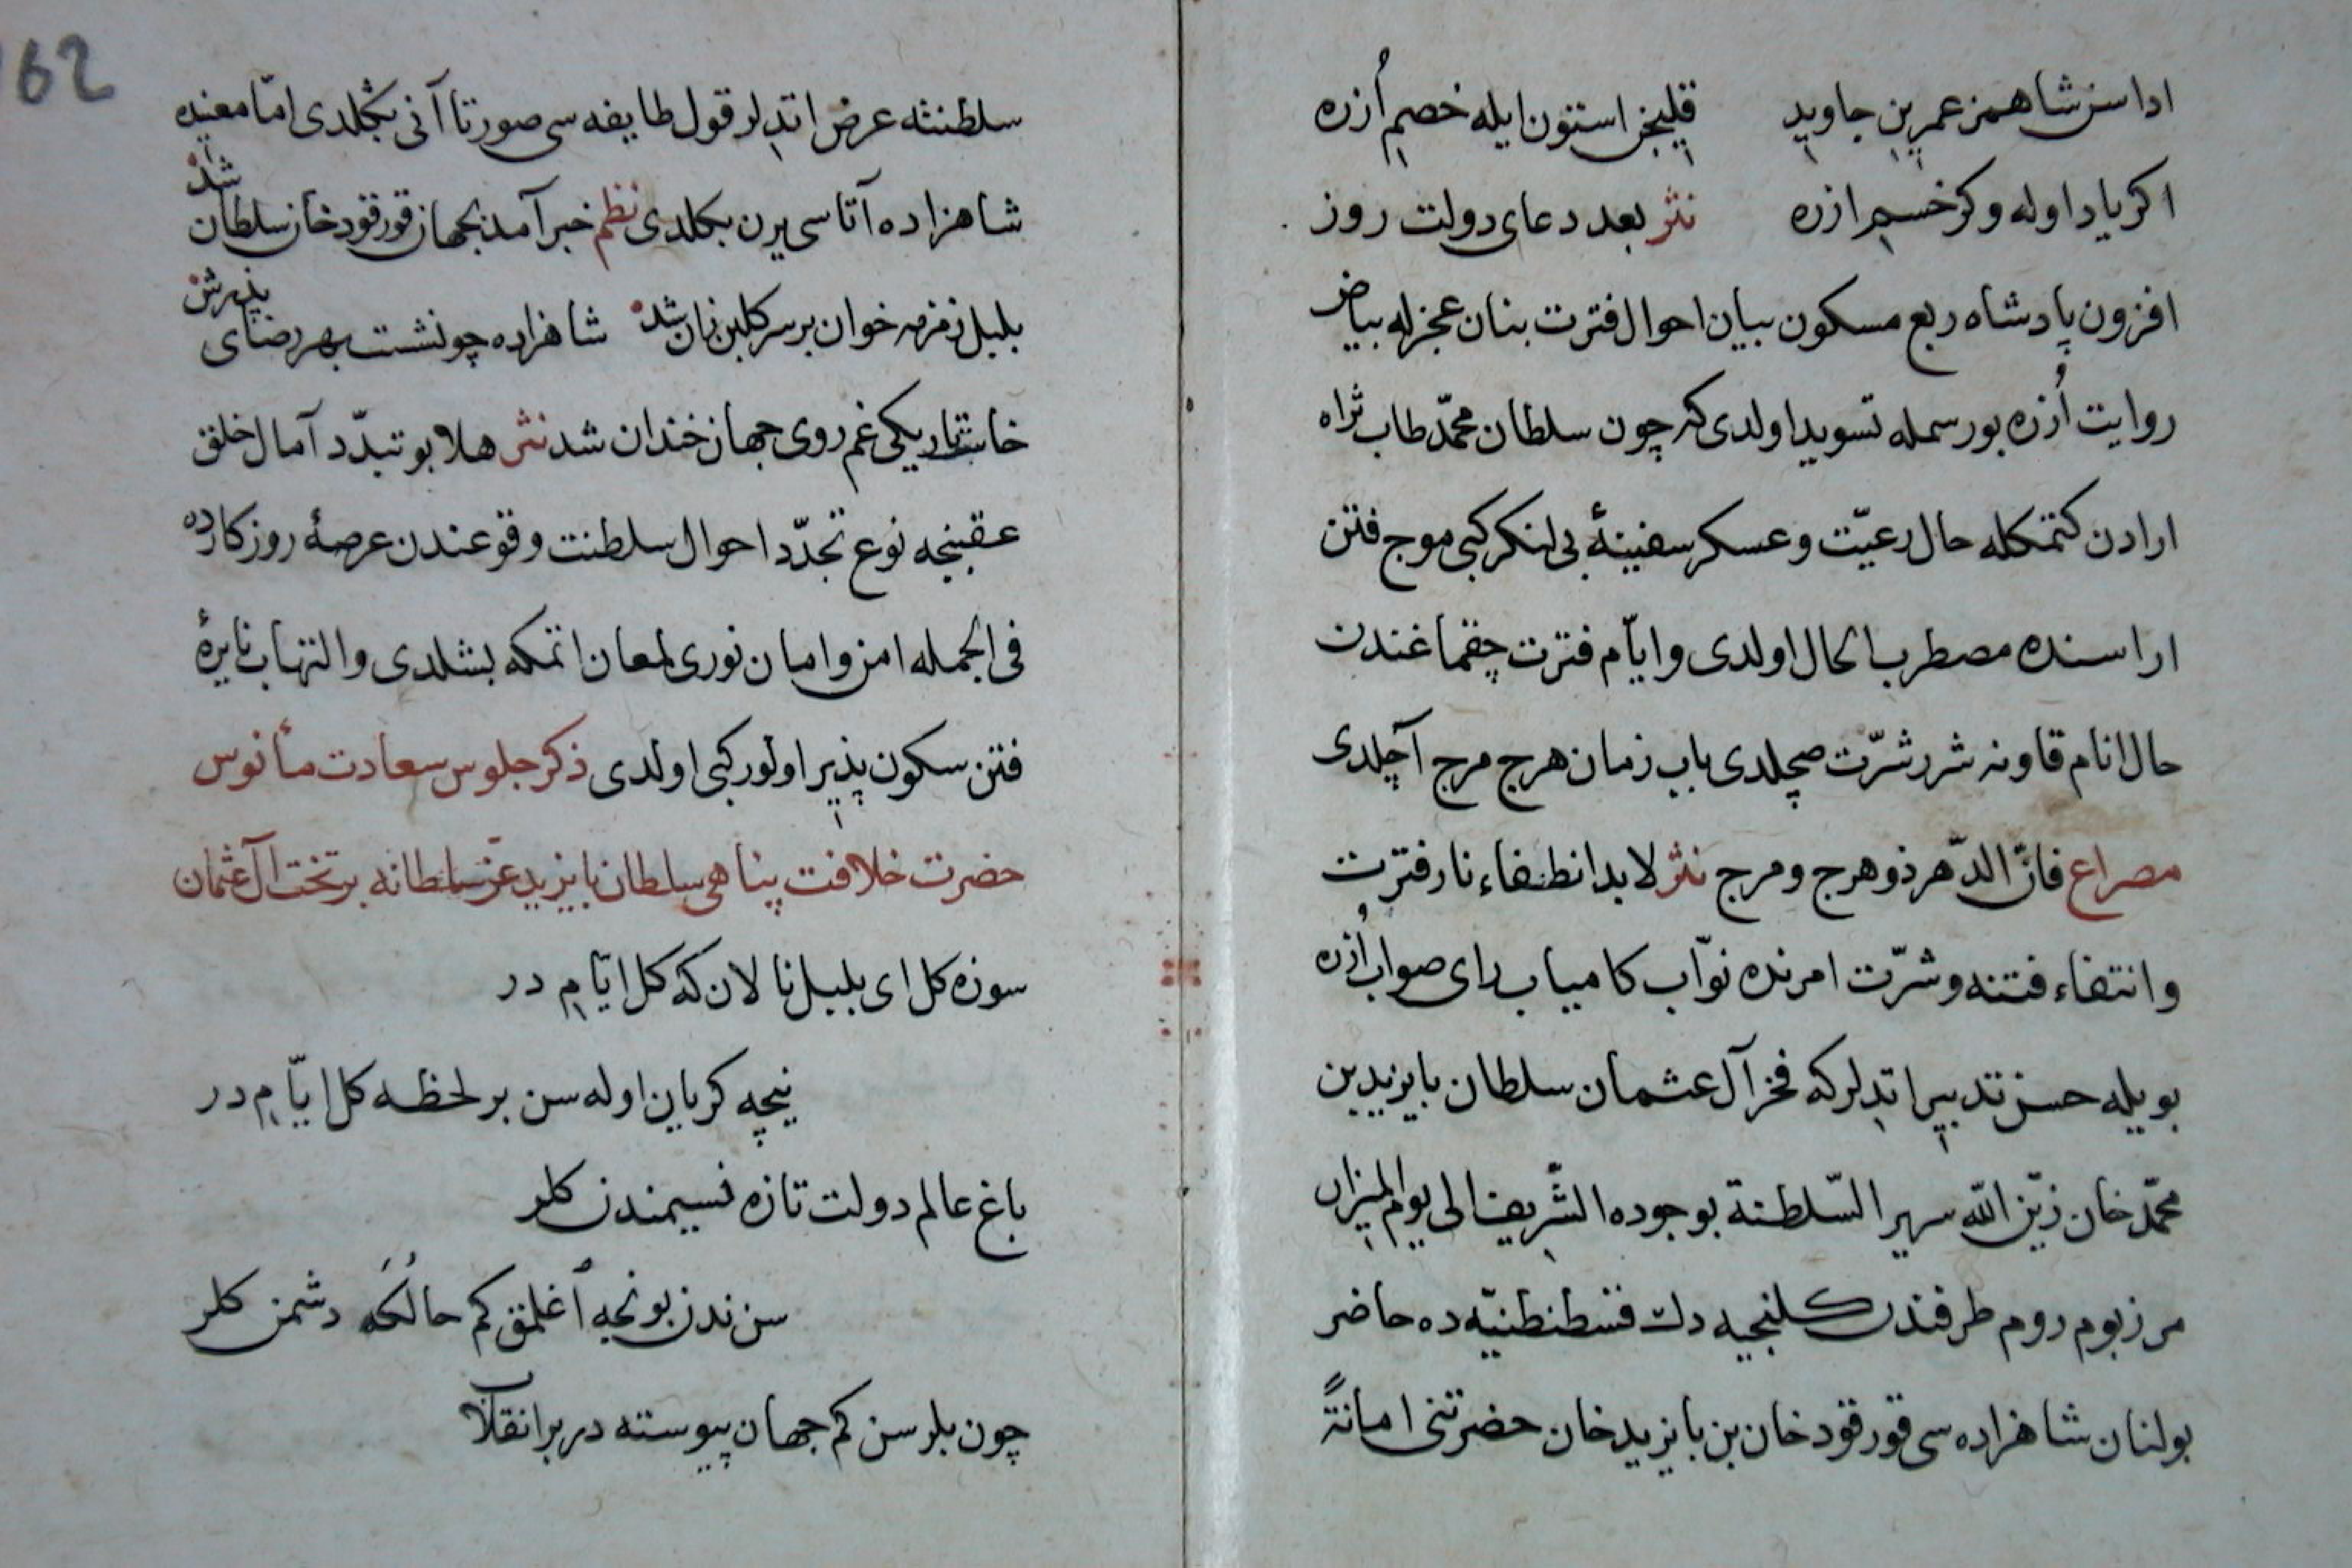 اداسن شاهمز عمرین جاوید قلیجن استون ایله خصم اُزره
اکر یاد اوله وکر خسم ازره نثر بعد دعای دولت روز
افزون پادشاه ربع مسکون بیان احوال فترت بنان عجزله بیاض
روایت اُزره بو رسمله تسوید اولدی که چون سلطان محمّد طاب ثراه
ارادن کتمکله حال رعیّت و عسکر سفینهٔ بی لنکر کبی موج فتن
اراسنده مصطرب الحال اولدی و ایّام فترت چقماغندن
حال انام قاونه شرر شرّت صچلدی باب زمان هرج مرج آچلدی
مصراع فانّ الدّهر ذو هرج و مرج نثر لابد انطفاء نار فترت
و انتفاء فتنه و شرّت امرنده نوّاب کامیاب رای صواب اُزره
بویله حسن تدبیر اتدلر که فخر آل عثمان سلطان بایزید بن
محمّد خان زیّن اللّه سریر السّلطنة بوجوده الشّریف الی یوم المیزان
مرزبوم روم طرفندن کلنجیه دك قسطنطنیّه ده حاضر
بولنان شاهزاده سی قورقود خان بن بایزید خان حضرتنی امانةً
162
سلطنته عرض اتدلر قول طایفه سی صورتا آنی بکلدی امّا معنیده
شاهزاده آتاسی یرن بکلدی نظم خبر آمد بجهان قورقود خان سلطان شد
بلبل زمزمه خوان بر سر کلبن زان شد شاهزاده چو نشست بهر رضای پذرش
خاست تاریکی غم روی جهان خندان شد نثر هلا بو تبدّد آمال خلق
عقبنجه نوع تجدّد احوال سلطنت وقوعندن عرصهٔ روزکارده
فی الجمله امن و امان نوری لمعان اتمکه بشلدی و التهاب نایرهٔ
فتن سکون پذیر اولور کبی اولدی ذکر جلوس سعادت مأنوس
حضرت خلافت پناهی سلطان بایزید عزّ سلطانه بر تخت آل عثمان
سوزه کل ای بلبل نالان که کل ایّام در
نیچه کریان اوله سن بر لحظه کل ایّام در
باغ عالم دولت تازه نسیمندن کلر
سن ندن بونجه اُغلمق کم حالُکَه دشمن کلر
چون بلرسن کم جهان پیوسته در بر انقلاب